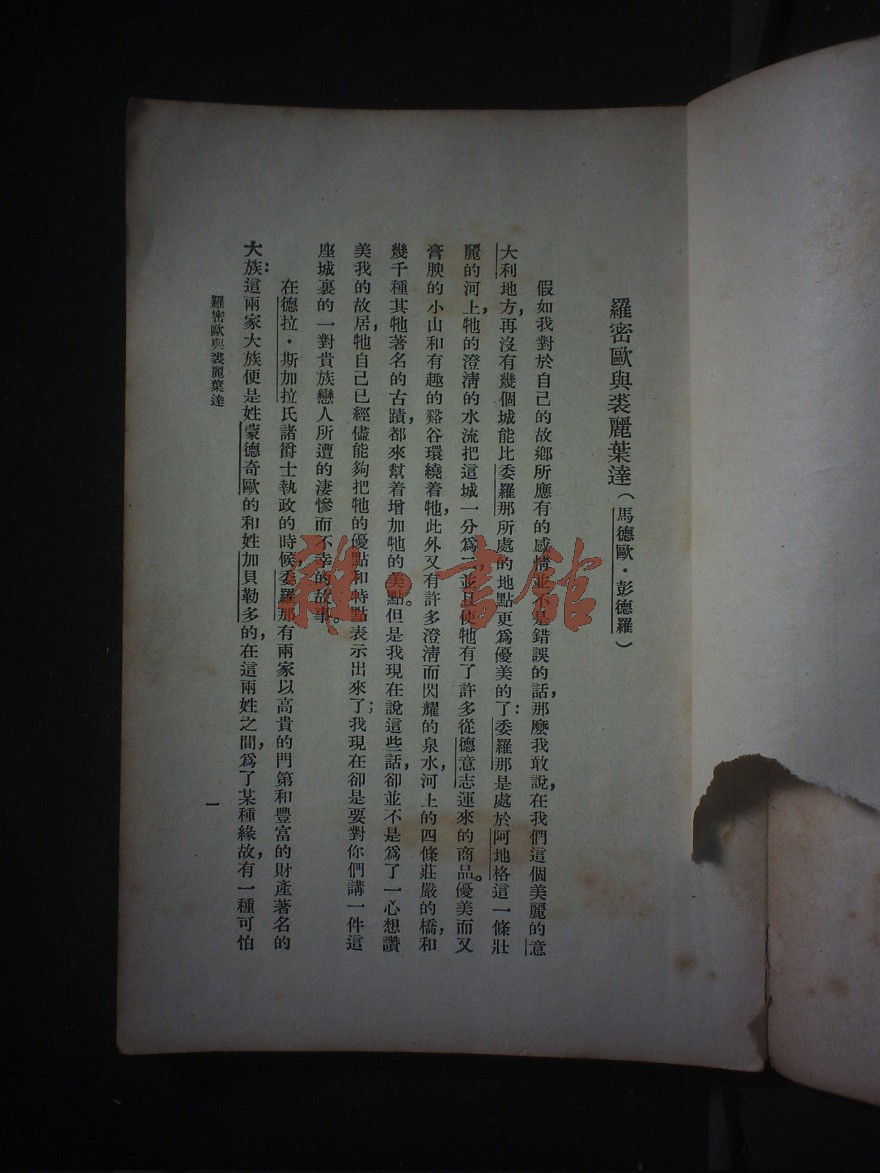 羅密歐與裘麗葉達（馬德歐·彭德羅）
假如我對於自己的故鄉所應有的感情並不是錯誤的話，那麼我敢說，在我們這個美麗的意
大利地方，再沒有幾個城能比委羅那所處的地點更爲優美的了：委羅那是處於阿地格這一條壯
麗的河上，牠的澄清的水流把這城一分爲二並且使牠有了許多從德意志運來的商品。優美而又
膏腴的小山和有趣的谿谷環繞着牠，此外又有許多澄清而閃耀的泉水，河上的四條莊嚴的橋，和
幾千種其牠著名的古蹟，都來幫着增加牠的美點。但是我現在說這些話，卻並不是爲了一心想讚
美我的故居，牠自己已經儘能夠把牠的優點和特點表示出來了；我現在卻是要對你們講一件這
座城裏的一對貴族戀人所遭的淒慘而不幸的故事。
在德拉·斯加拉氏諸爵士執政的時候，委羅那有兩家以高貴的門第和豐富的財產著名的
大族：這兩家大族便是姓蒙德奇歐的和姓加貝勒多的，在這兩姓之間，爲了某種緣故，有一種可怕
羅密歐與裘麗葉達
一
雜·書館